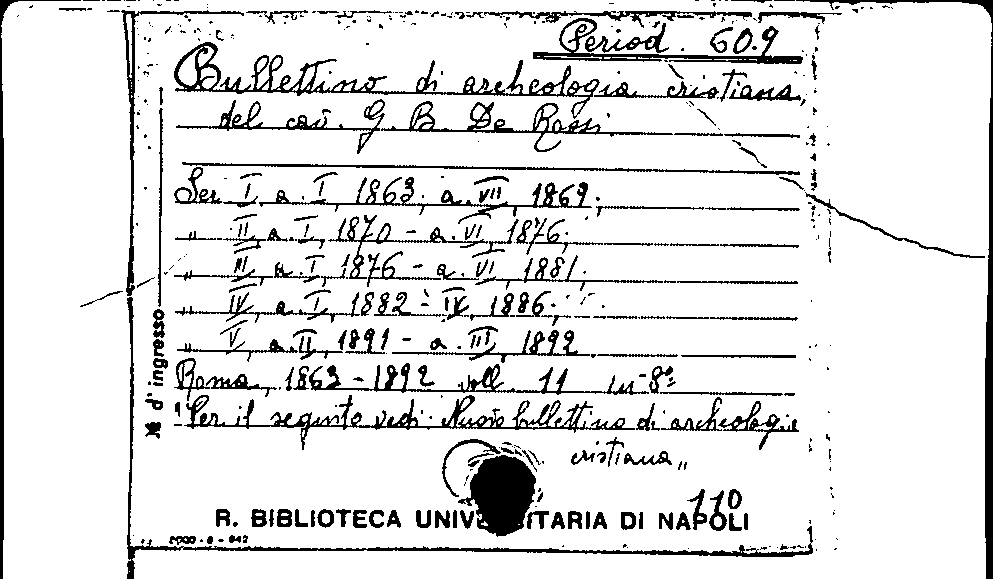 Period. 60.9
Bullettino di archeologia cristiana,
del cav. G. B. De Rossi.
Ser. I, a. I, 1863; a. VII, 1869;
" II, a. I, 1870 - a. VI, 1876;
" III, a. I, 1876 - a. VI, 1881;
" IV, a. I, 1882 - IV, 1886;
" V, a. II, 1891 - a. III, 1892.
Roma, 1863-1892 voll. 11 in-8º
"Per il seguito vedi: Nuovo bullettino di archeologia
cristiana"
110
R. BIBLIOTECA UNIVERSITARIA DI NAPOLI
№ d'ingresso